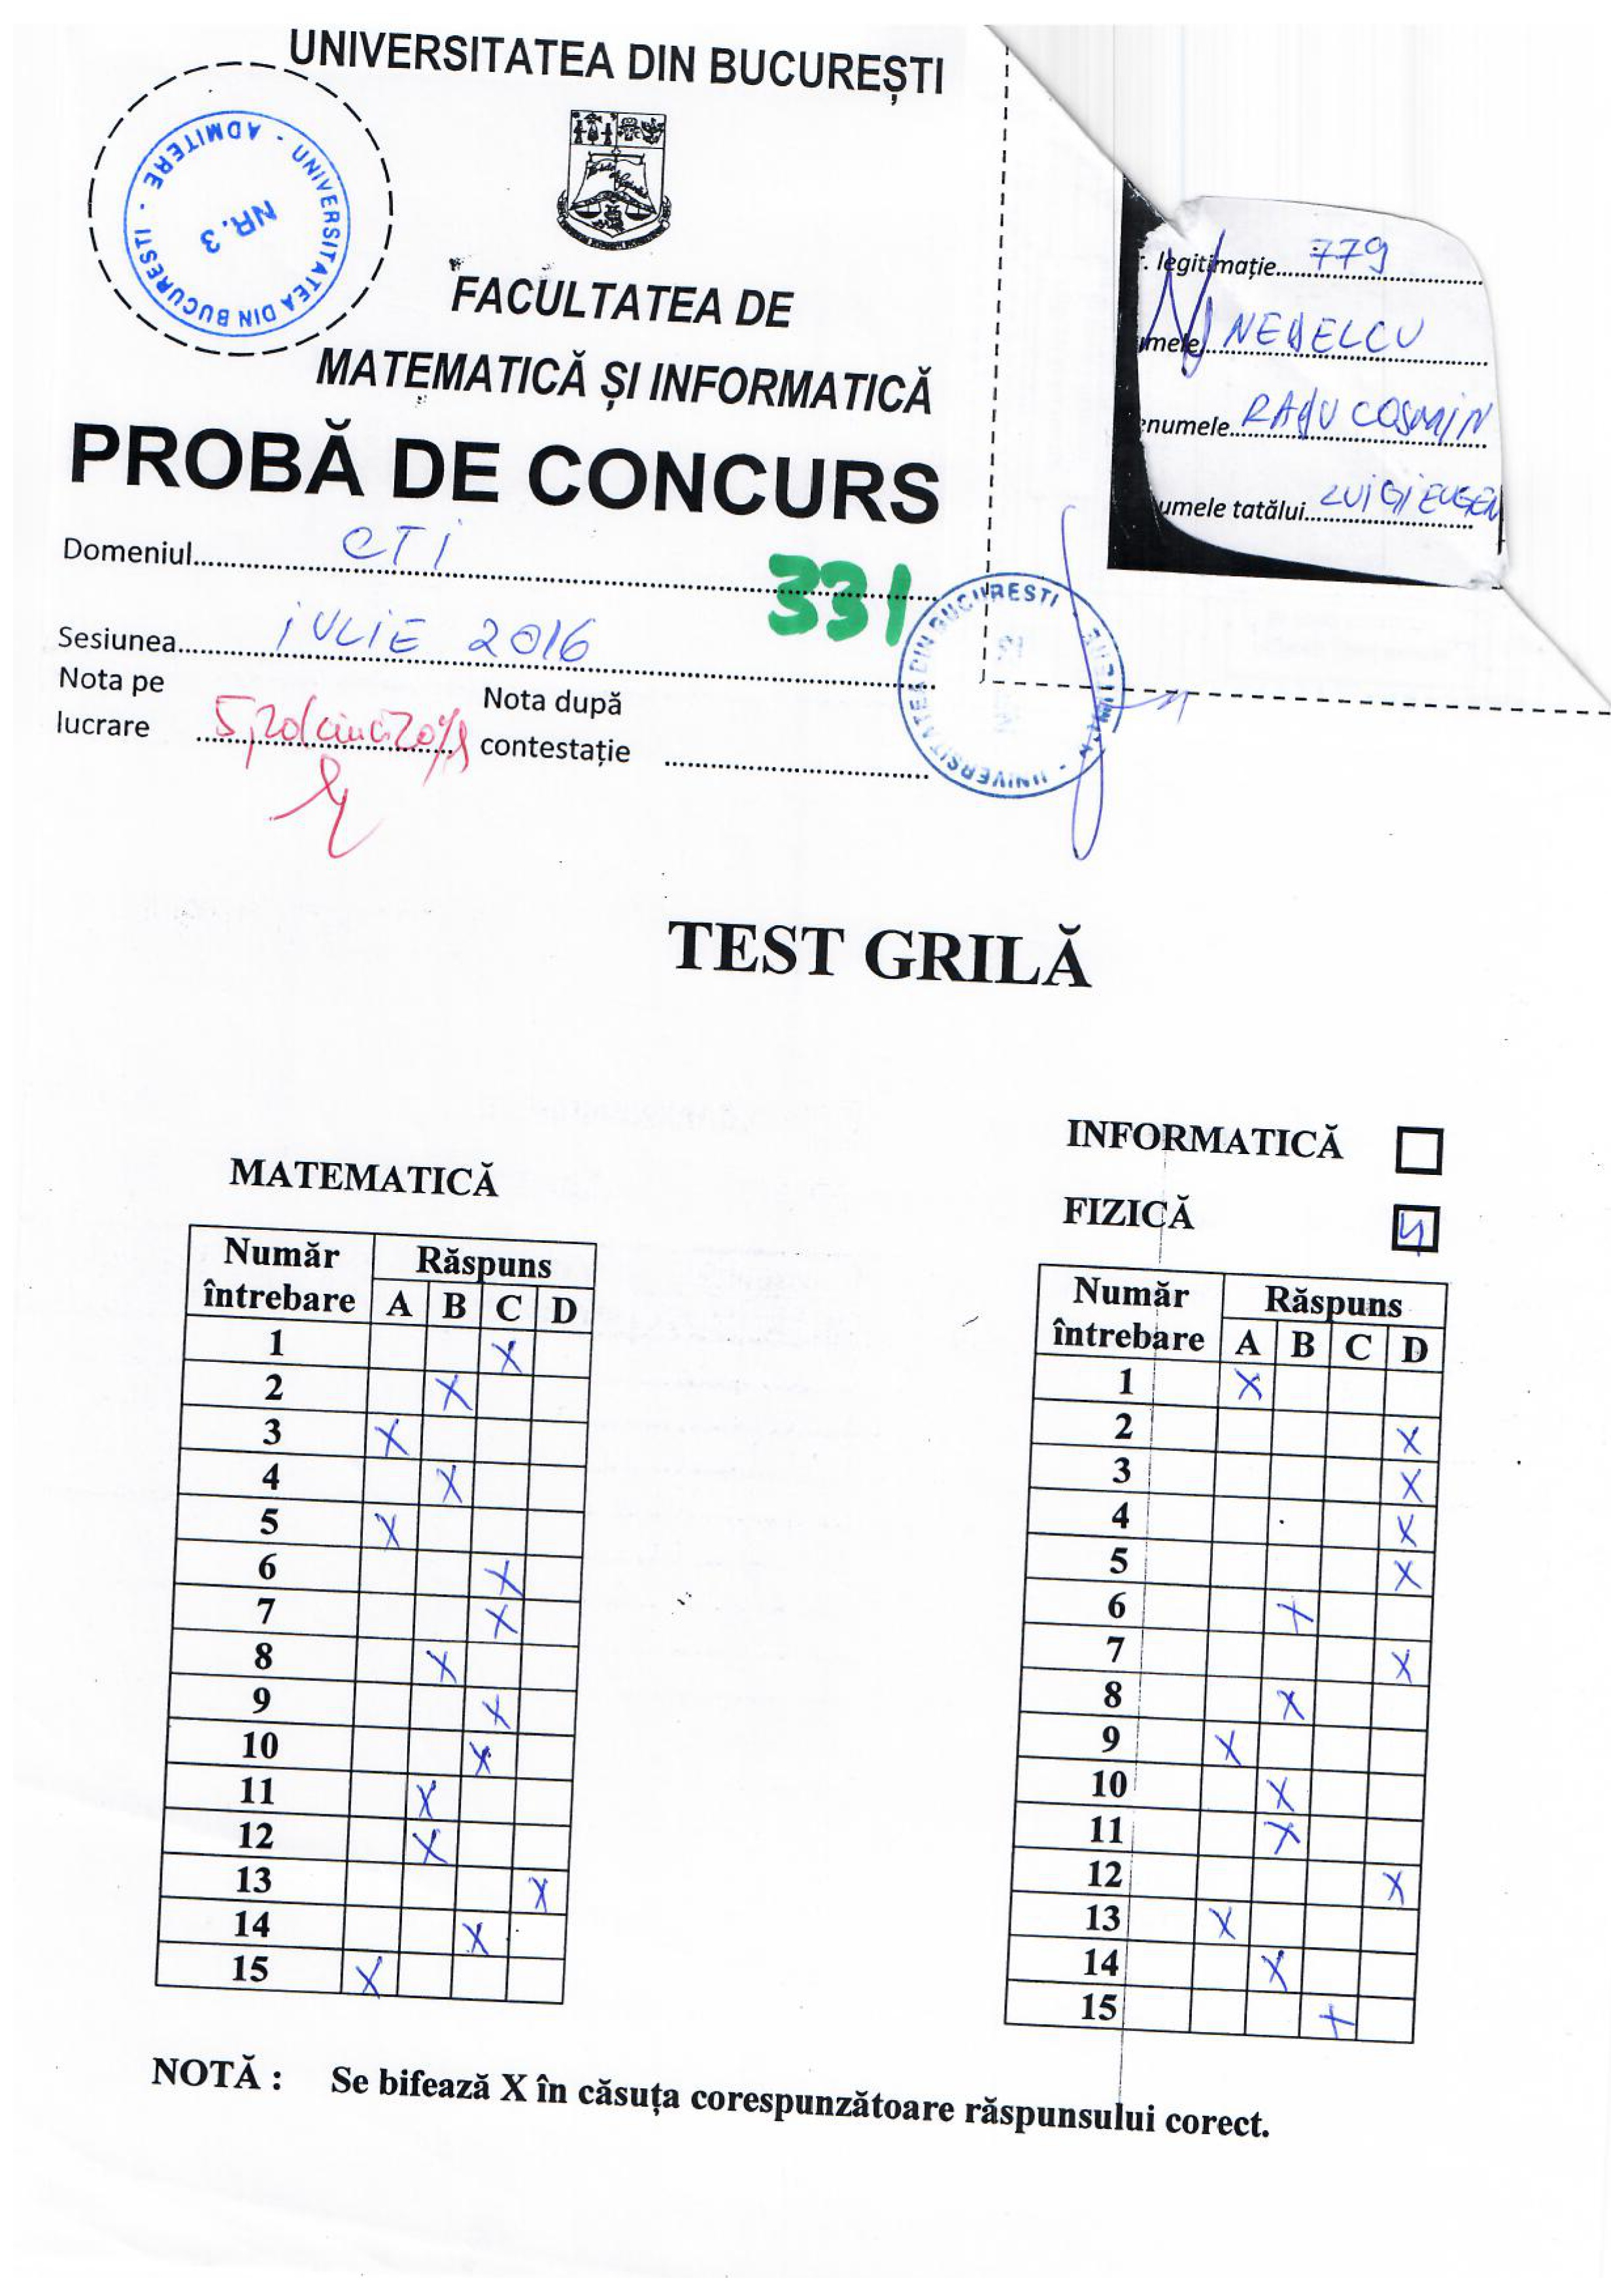 UNIVERSITATEA DIN BUCUREȘTI
UNIVERSITATEA DIN BUCURESTI - ADMITERE -
NR. 3
FACULTATEA DE
MATEMATICĂ ȘI INFORMATICĂ
PROBĂ DE CONCURS
Domeniul CTI
331
Sesiunea IULIE 2016
Nota pe
lucrare 5,20
Nota după
contestație
. legitimație 779
umele NEDELCU
enumele RADU COSMIN
umele tatălui LUIGI EUGEN
UNIVERSITATEA DIN BUCURESTI
TEST GRILĂ
MATEMATICĂ
Număr întrebare Răspuns
A B C D
1 X
2 X
3 X
4 X
5 X
6 X
7 X
8 X
9 X
10 X
11 X
12 X
13 X
14 X
15 X
INFORMATICĂ
FIZICĂ
Număr întrebare Răspuns
A B C D
1 X
2 X
3 X
4 X
5 X
6 X
7 X
8 X
9 X
10 X
11 X
12 X
13 X
14 X
15 X
NOTĂ : Se bifează X în căsuța corespunzătoare răspunsului corect.